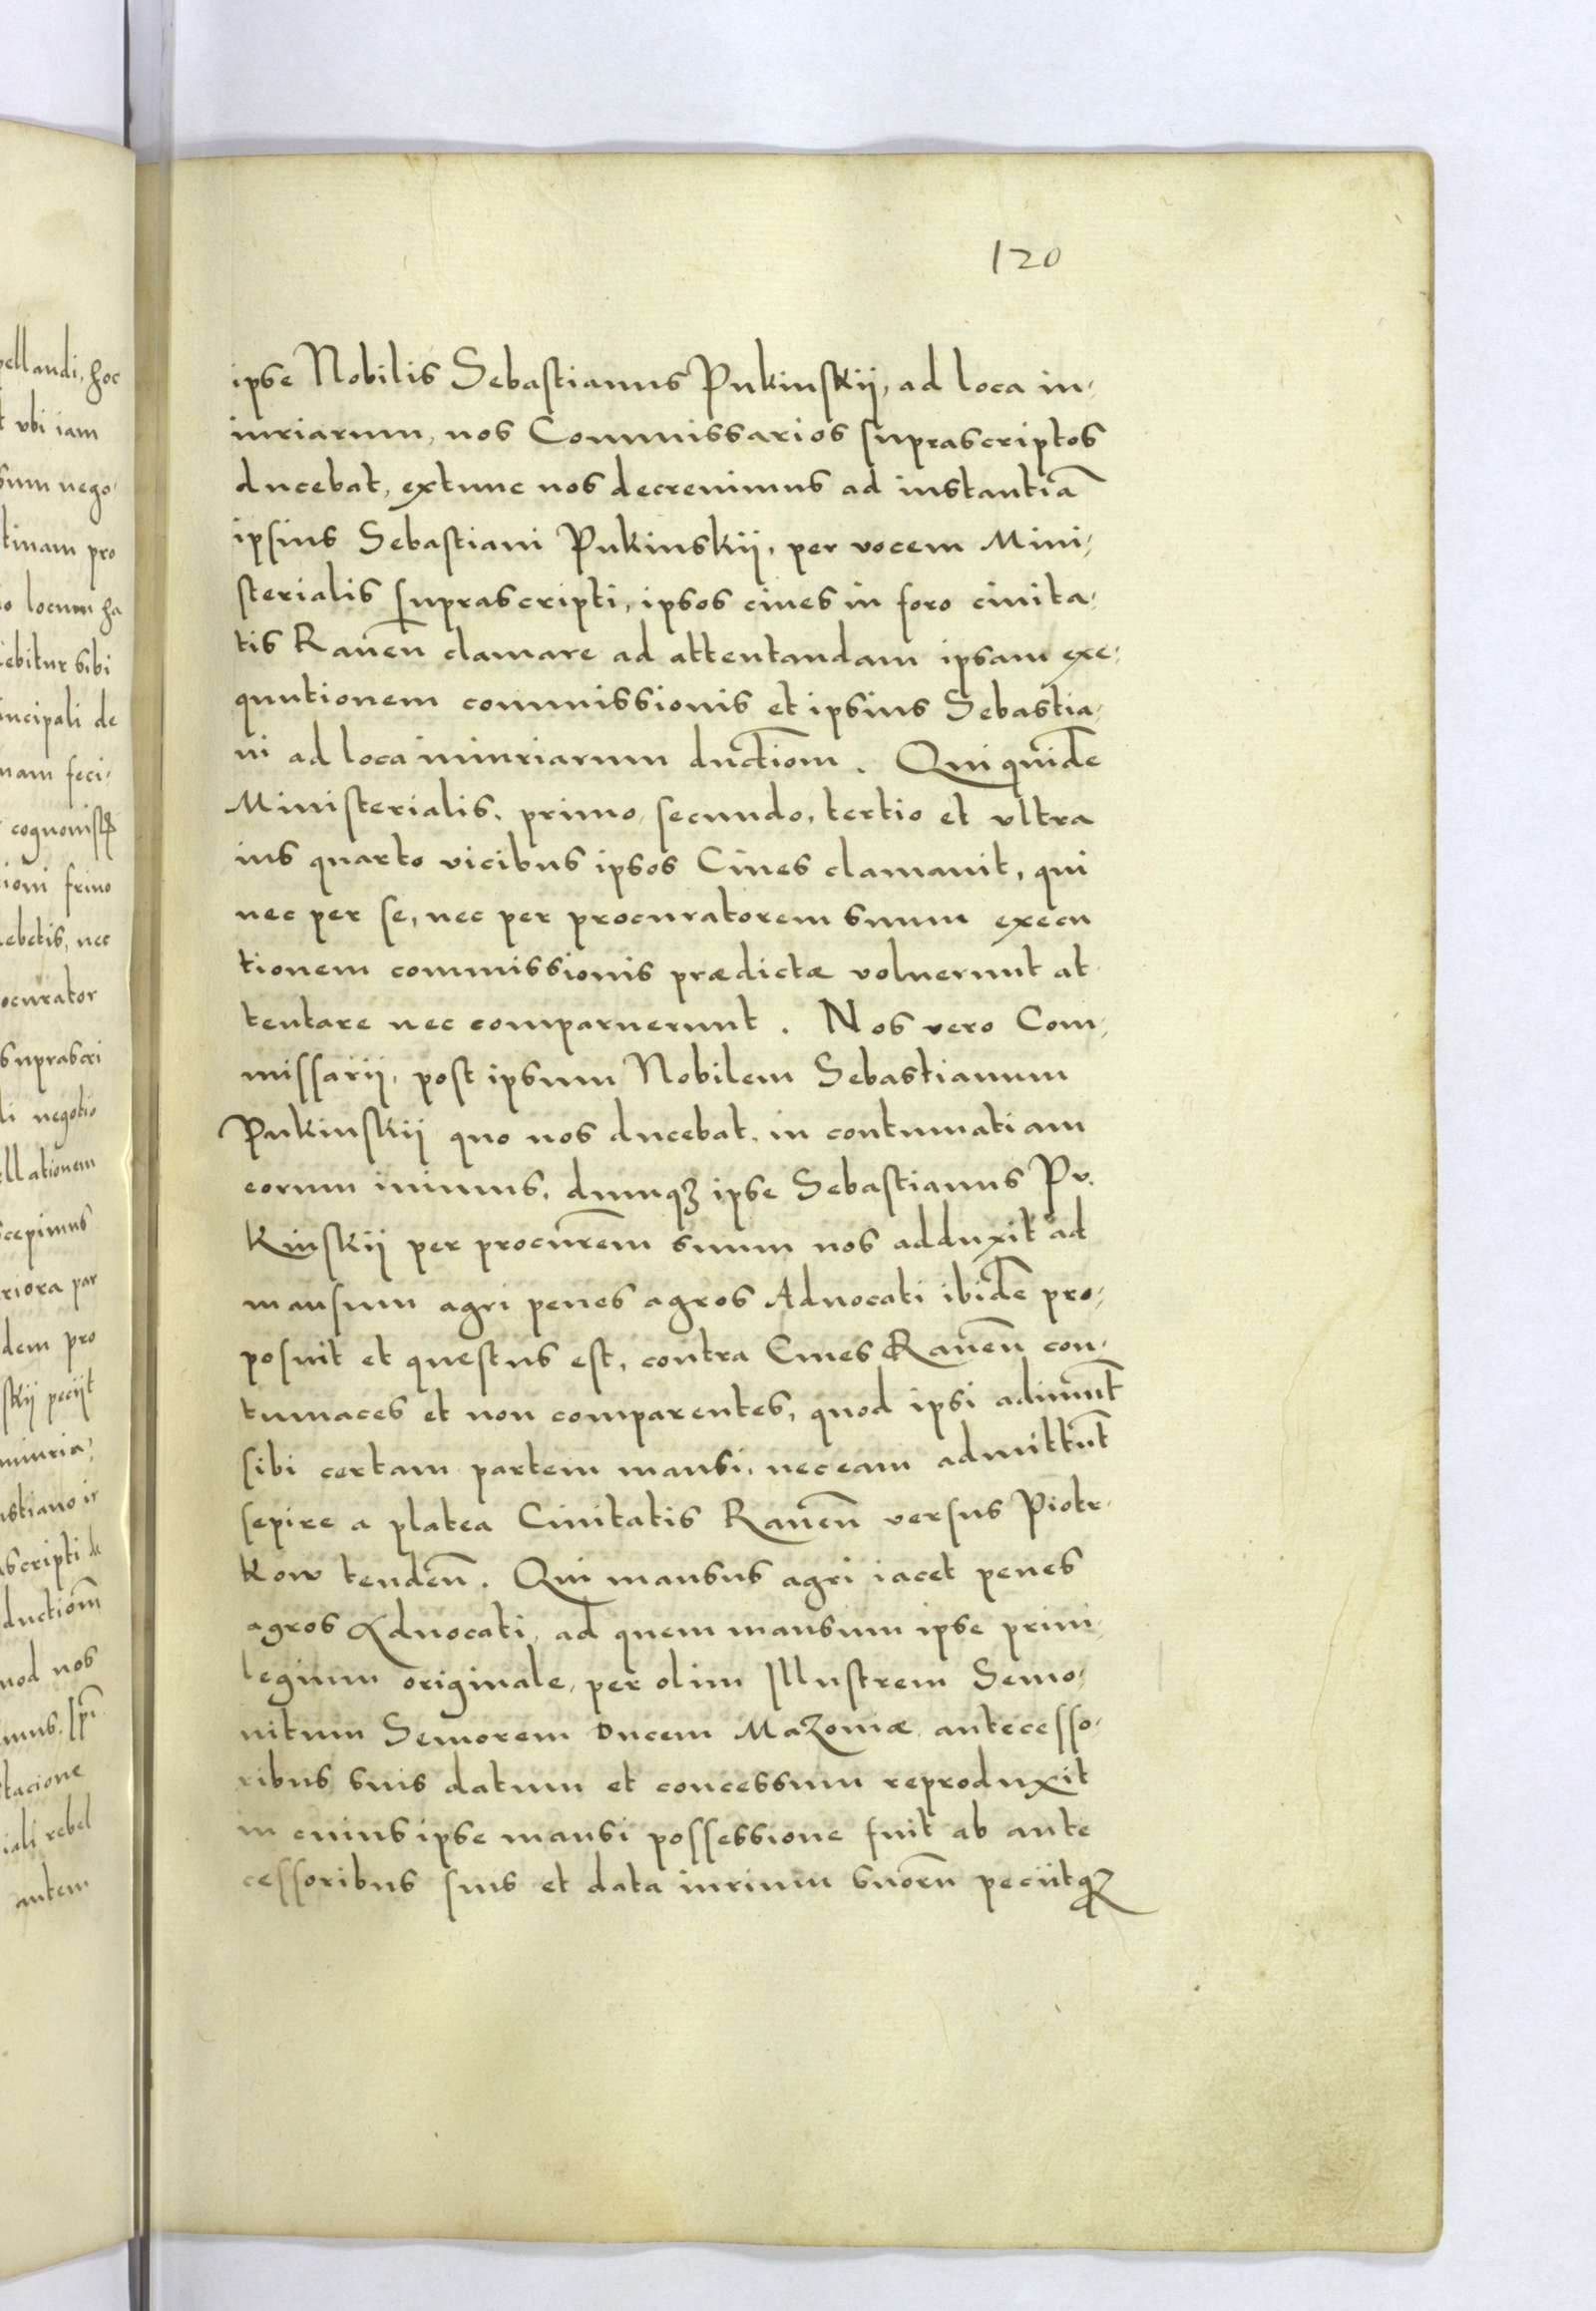 120
ipse Nobilis Sebastianus Pukinskij, ad loca in-
iuriarum, nos Commissarios suprascriptos
ducebat, extunc nos decrevimus ad instantiā
ipsius Sebastiani Pukinskij, per vocem Mini-
sterialis suprascripti, ipsos cives in foro civita-
tis Raveñ clamare ad attentandam ipsam exe-
quutionem commissionis et ipsius Sebastia-
ni ad loca iniuriarum ductiom̄. Qui quidē
Ministerialis, primo, secundo, tertio et ultra
ius quarto vicibus ipsos Cives clamavit, qui
nec per se, nec per procuratorem suum execu
tionem commissionis prædictæ voluerunt at
tentare nec comparuerunt. Nos vero Com-
missarij, post ipsum Nobilem Sebastianum
Pukinskij quo nos ducebat, in contumatiam
eorum ivimus, dumqȝ ipse Sebastianus Pu-
kinskij per procurēm suum nos adduxit ad
mansum agri penes agros Advocati ibidē pro-
posuit et questus est, contra Cives Raveñ con-
tumaces et non comparentes, quod ipsi adimūt
sibi certam partem mansi, nec eam admittūt
sepire a platea Civitatis Raveñ versus Piotr-
kow tendeñ. Qui mansus agri iacet penes
agros Advocati, ad quem mansum ipse privi-
legium originale, per olim Illustrem Semo-
vitum Seniorem Ducem Mazoviæ antecesso-
ribus suis datum et concessum reproduxit
in cuius ipse mansi possessione fuit ab ante
cessoribus suis et data iurium suorū peciitqȝ
pellandi, hoc
t ubi iam
sum nego-
tinam pro
o locum ha
iebitur sibi
incipali de
nam feci-
cognovist
ioni frivo
ebetis, nec
ocurator
suprascri
li negotio
llationem
scepimus
riora par
dem pro
skij peciit
iniuria-
astiano
ascripti de
ductiom̄
uod nos
imus,
tacione
iali rebel
autem